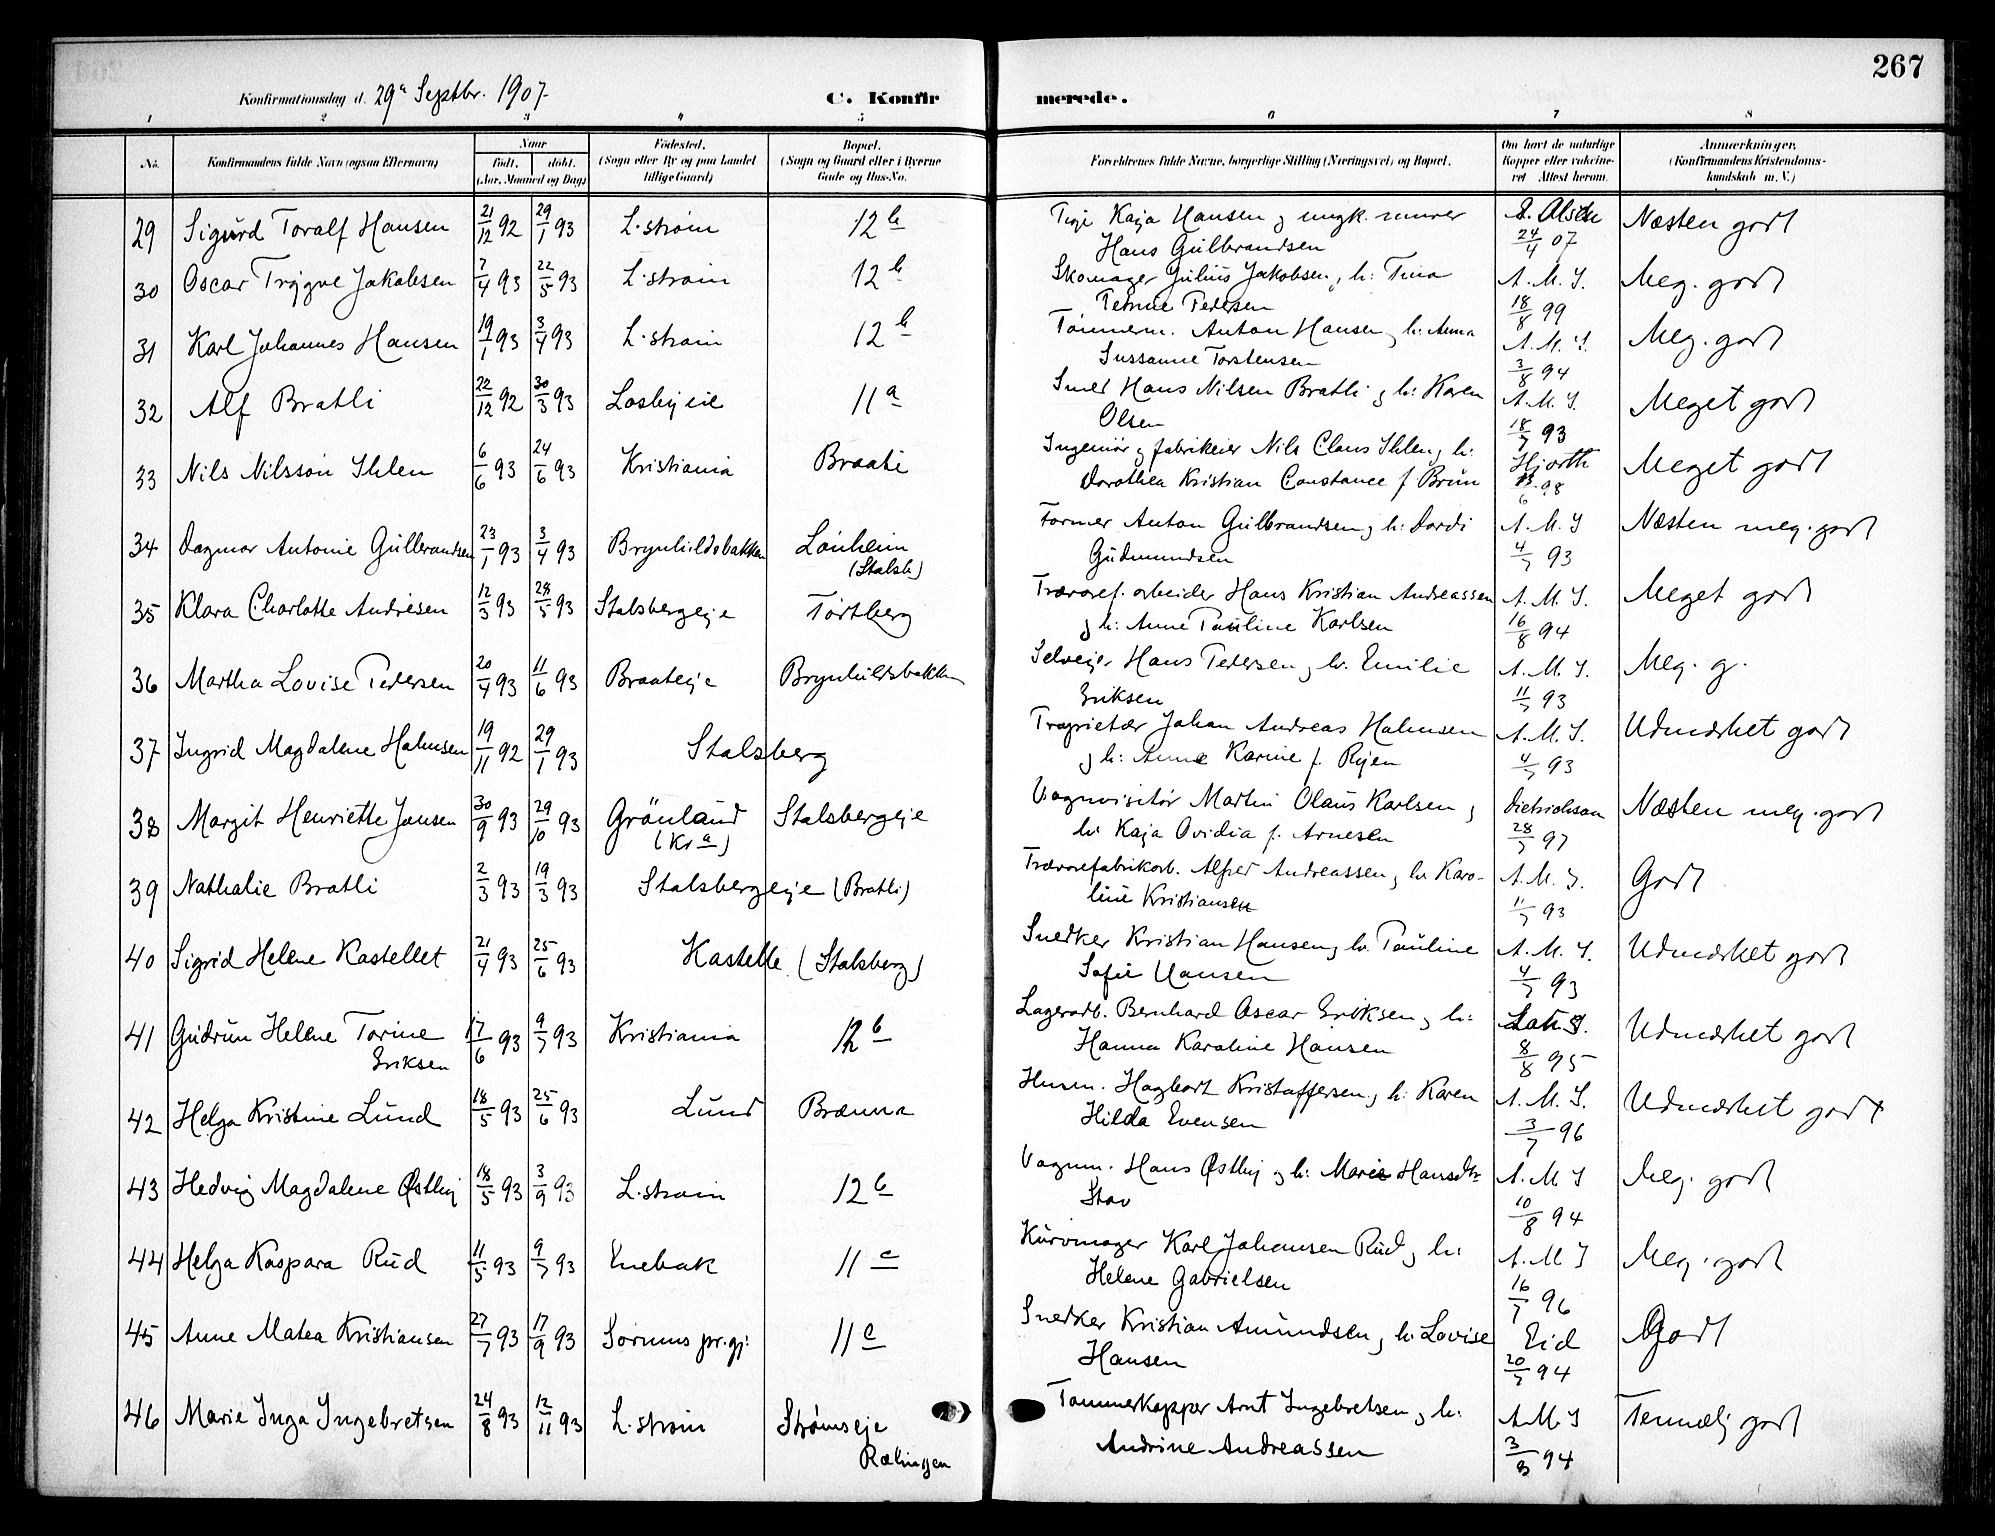 267
Konfirmationsdag d. 29de Septbr. 1907.
C. Konfirmerede.
1 2 3 4 5 6 7 8
No. Konfirmandens fulde Navn (ogsaa Efternavn) Naar født, døbt. (Aar, Maaned og Dag) Fødested. (Sogn eller By og paa Landet tillige Gaard) Bopæl. (Sogn og Gaard eller i Byerne Gade og Hus-No. Forældrenes fulde Navne, borgerlige Stilling (Næringsvei) og Bopæl. Om havt de naturlige Kopper eller vakcineret Attest herom. Anmærkninger. (Konfirmandens Kristendomskundskab m. V.)
29 Sigurd Toralf Hansen 21/12 92 29/1 93 L.strøm 12 b Pige Kaja Hansen og ungk. murer Hans Gulbrandsen 24/4 07 Næsten godt
30 Oscar Trygve Jakobsen 7/4 93 22/5 93 L.strøm 12 b Skomager Julius Jakobsen, h: Tina Petrine Pedersen A. M. S. 18/8 99 Meg. godt
31 Karl Johannes Hansen 19/1 93 3/4 93 L.strøm 12 b Tømmerm. Anton Hansen og h: Anna Sussanne Torstensen A. M. S. 3/8 94 Meg. godt
32 Alf Bratli 22/12 92 30/3 93 Losbyeie 11 a Smed Hans Nilsen Bratli og h: Karen Olsen A. M. S. 18/7 93 Meget godt
33 Nils Nilssøn Ihlen 6/6 93 24/6 93 Kristiania Braate Ingeniør og fabrikeier Nils Claus Ihlen og h: Dorothea Kristian Constance f. Brun Hjorth 6 98 Meget godt
34 Dagmar Antonie Gulbrandsen 23/1 93 3/4 93 Brynhildsbakken Lønheim (Stalsb) Former Anton Gulbrandsen og h: Dordi Gudmundsen A. M. S 4/7 93 Næsten meg. godt
35 Klara Charlotte Andresen 12/3 93 28/5 93 Stalsbergeje Tørtberg Trævaref. arbeider Hans Kristian Andreassen og h: Anne Pauline Karlsen A. M. S. 16/8 94 Meget godt
36 Martha Lovise Pedersen 20/4 93 11/6 93 Braateeje Brynhildsbakken Selveier Hans Pedersen og h: Emilie Eriksen A. M. S. 11/7 93 Meg. g.
37 Ingrid Magdalene Halmsen 19/11 92 29/1 93 Stalsberg Proprietær Johan Andreas Halmsen og h: Anne Karine f. Ryen A. M. S. 4/7 93 Udmærket godt
38 Margit Henriette Jansen 30/9 93 29/10 93 Grønland (Kra) Stalsbergeje Vognvisitør Martin Olaus Karlsen og h: Kaja Ovidia f. Arnesen Dietrichson 28/7 97 Næsten meg. godt
39 Nathalie Bratli 2/3 93 19/3 93 Stalsbergeje (Bratli) Trævarefabrikarb. Alfred Andreassen og h: Karoline Kristiansen A. M. S. 11/7 93 Godt
40 Sigrid Helene Kastellet 21/4 93 25/6 93 Kastelle (Stalsberg) Snedker Kristian Hansen og h: Pauline Sofie Hansen A. M. S. 4/7 93 Udmærket godt
41 Gudrun Helene Torine Eriksen 17/6 93 9/7 93 Kristiania 12 b Lagerarb. Bernhard Oscar Eriksen og h: Hanna Karoline Hansen 8/8 95 Udmærket godt
42 Helga Kristine Lund 18/5 93 25/6 93 Lund Brænna Husm. Hagbart Kristoffersen og h: Karen Hilda Evensen A. M. S. 3/7 96 Udmærket godt
43 Hedvig Magdalene Østby 18/5 93 3/9 93 L.strøm 12 b Vognm. Hans Østby og h: Marie Hansdtr Stav A. M. S 10/8 94 Meg. godt
44 Helga Kaspara Rud 11/5 93 9/7 93 Enebak 11 c Kurvmager Karl Johansen Rud og h: Helene Gabrielsen A. M S 16/7 96 Meg. godt
45 Anne Matea Kristiansen 27/7 93 17/9 93 Sørums pr.gj: 11 c Snedker Kristian Amundsen og h: Lovise Hansen Eid 20/7 94 Godt
46 Marie Inga Ingebretsen 24/8 93 12/11 93 L.strøm Strømseje Rælingen Tømmerkøpper Arnt Ingebretsen og h: Andrine Andreassen A. M. S 3/8 94 Temmelig godt